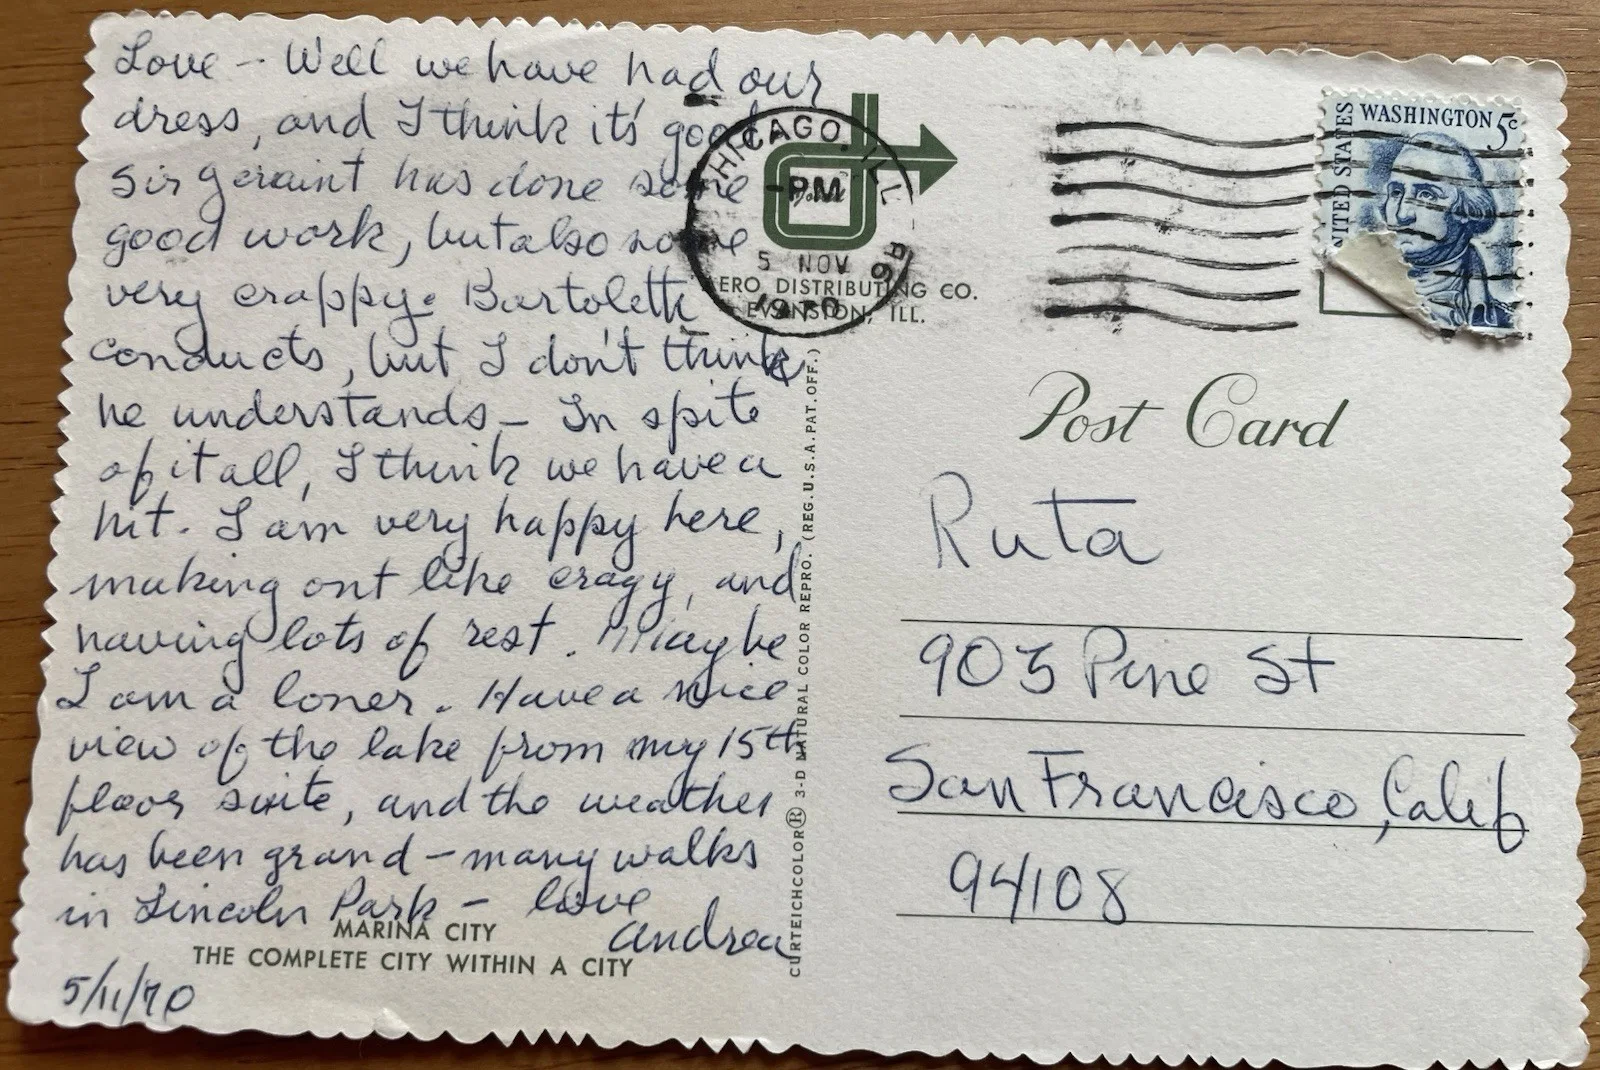 Love - Well we have had our
dress, and I think it's good
Sir Geraint has done some
good work, but also some
very crappy. Bartoletti
conducts, but I don't think
he understands - In spite
of it all, I think we have a
hit. I am very happy here,
making out like crazy, and
having lots of rest. Maybe
I am a loner. Have a nice
view of the lake from my 15th
floor suite, and the weather
has been grand - many walks
in Lincoln Park - love
Andrea
MARINA CITY
THE COMPLETE CITY WITHIN A CITY
5/11/70
CHICAGO, ILL
PM
5 NOV
1970
AERO DISTRIBUTING CO.
EVANSTON, ILL.
CURTEICHCOLOR® 3-D NATURAL COLOR REPRO. (REG. U.S.A. PAT. OFF.)
UNITED STATES
WASHINGTON 5c
Post Card
Ruta
903 Pine St
San Francisco, Calif
94108